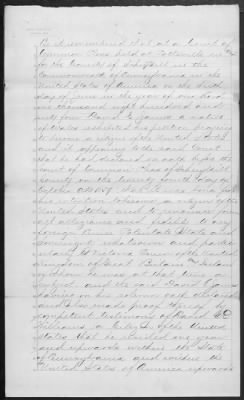 Be it remembered that at a Court of
Common Pleas held at Pottsville in &
for the County of Schuylkill in the
Commonwealth of Pennsylvania in the
United States of America on the
day of June in the year of our Lord
one thousand eight hundred and
sixty four David E. James a native
of Wales exhibited his petition praying
to become a citizen of the United States
and it appearing to the said Court
that he had declared on oath before the
court of Common Pleas of Schuylkill
County on the twenty day of
October AD 1859 that it was bona fide
his intention to become a citizen of the
United States and to renounce forever
all allegiance and fidelity to any
foreign Prince Potentate State and
Sovereignty whatsoever and partic-
ularly to Victoria Queen of the United
Kingdom of Great Britain & Ireland
of whom he was at that time a
subject and the said David E James
having on his solemn oath declared
and also made proof thereof by
competent testimony of David
Williams a citizen of the United
States that he resided one year
and upwards within the State
of Pennsylvania and within the
United States of America upwards